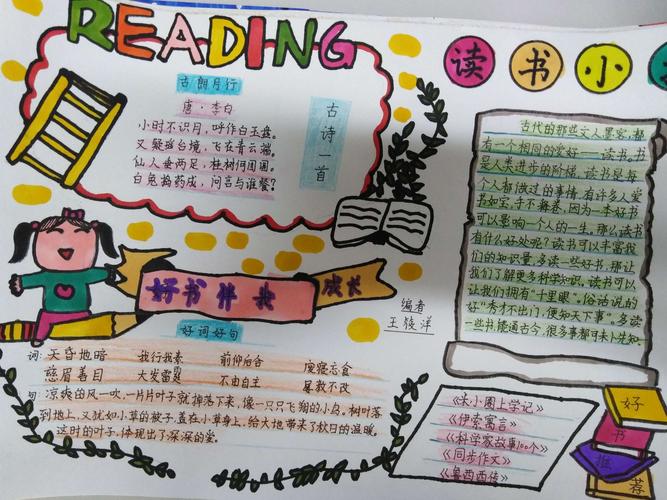 READING
读书小
古朗月行
唐·李白
小时不识月,呼作白玉盘。
又疑瑶台境,飞在青云端。
仙人垂两足,桂树何团团。
白兔捣药成,问言与谁餐?
古诗一首
好书伴我成长
编者
好词好句
词:天昏地暗 我行我素 前仰后合 废寝忘食
慈眉善目 大发雷霆 不由自主 屡教不改
句:凉爽的风一吹,一片片叶子就掉落下来,像一只只飞翔的小鸟。树叶落
到地上,又犹如小草的被子,盖在小草身上,给大地带来了秋日的温暖。
这时的叶子,体现出了深深的爱。
古代的那些文人墨客,都
有一个相同的爱好——读书。书
是人类进步的阶梯,读书是每
个人都做过的事情,有许多人爱
书如宝,手不释卷,因为一本好书
可以影响一个人的一生。那么读书
有什么好处呢?读书可以丰富我
们的知识量,多读一些好书,那让
我们了解更多科学知识,读书可以
让我们拥有“千里眼”。俗话说的
好“秀才不出门,便知天下事”。多读
一些书能通古今,很多事都可未卜先知
《米小圈上学记》
《伊索寓言》
《科学家故事100个》
《同步作文》
《鲁西西传》
好
书
推
荐